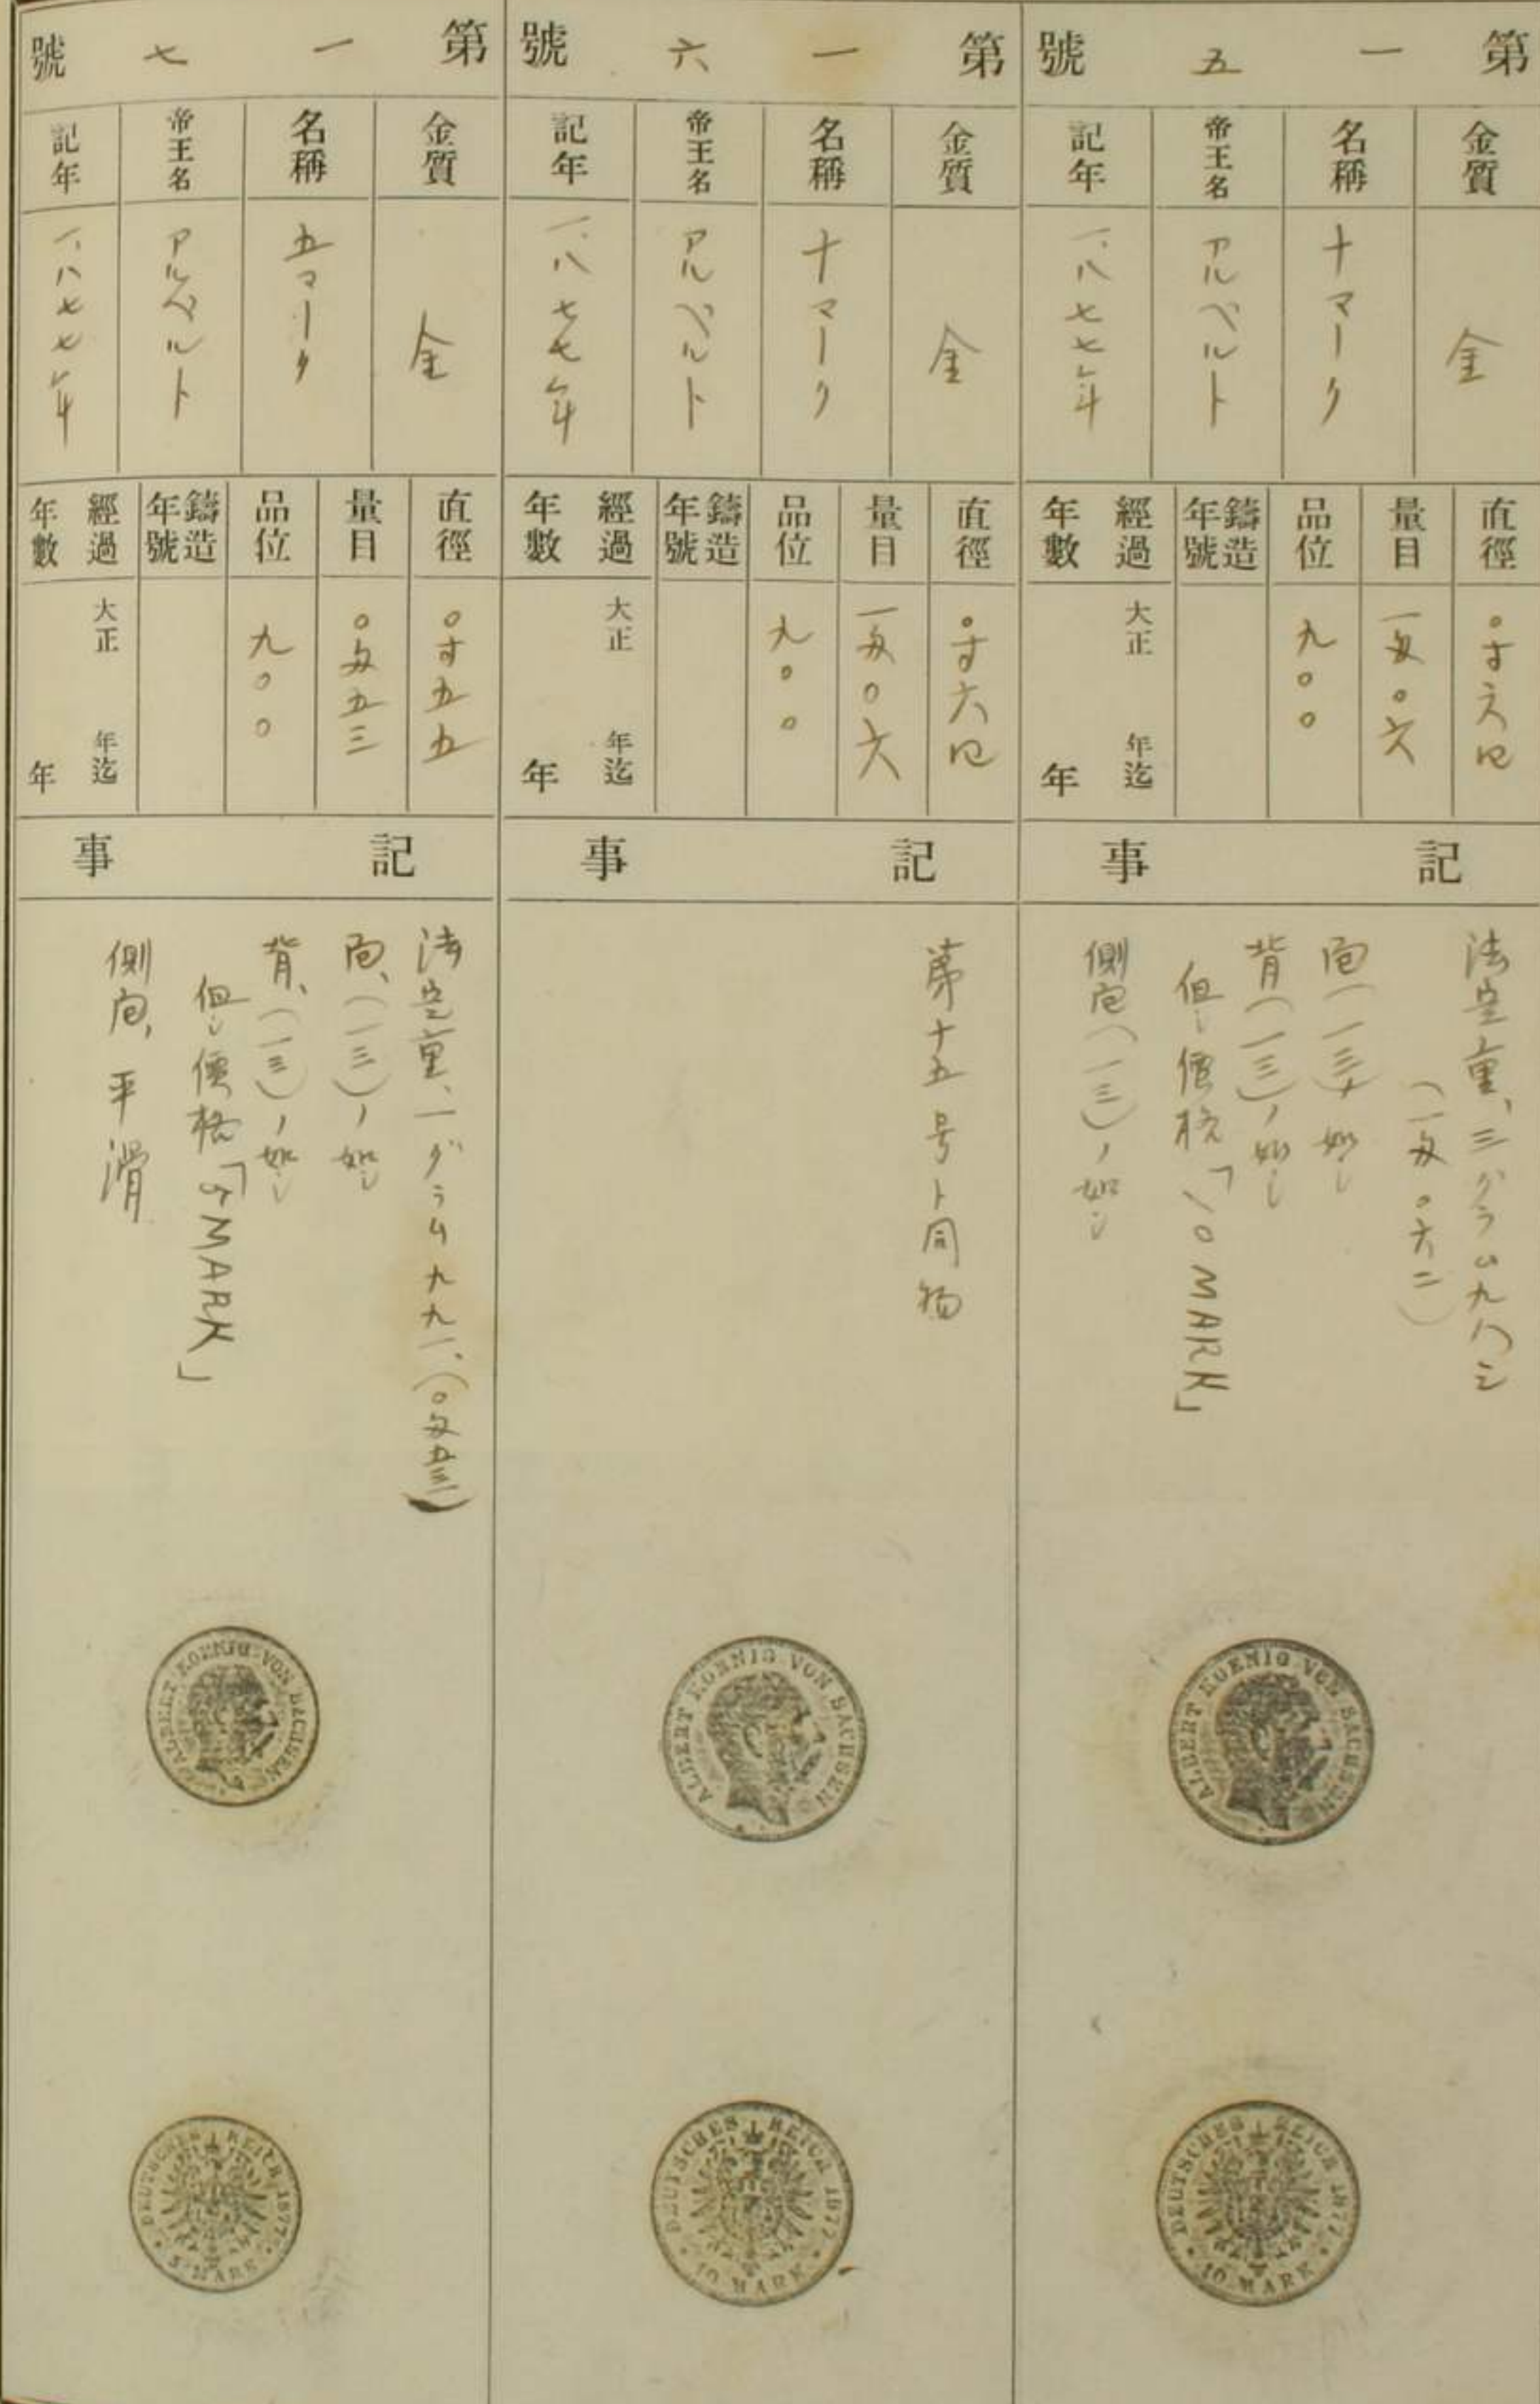 第一五號
金質
金
名稱
十マーク
帝王名
アルベルト
記年
一、八七七年
直徑
〇寸六四
量目
一匁〇六
品位
九〇〇
鑄造年號
經過年數
大正 年迄
年
記事
法定重、三グラム九八二
(一匁〇六二)
面(一三)ノ如シ
背(一三)ノ如シ
但シ價格「10 MARK」
側面(一三)ノ如シ
ALBERT KOENIG VON SACHSEN
DEUTSCHES REICH 1877
10 MARK
第一六號
金質
金
名稱
十マーク
帝王名
アルベルト
記年
一、八七七年
直徑
〇寸六四
量目
一匁〇六
品位
九〇〇
鑄造年號
經過年數
大正 年迄
年
記事
第十五号ト同物
ALBERT KOENIG VON SACHSEN
DEUTSCHES REICH 1877
10 MARK
第一七號
金質
金
名稱
五マーク
帝王名
アルベルト
記年
一、八七七年
直徑
〇寸五五
量目
〇匁五三
品位
九〇〇
鑄造年號
經過年數
大正 年迄
年
記事
法定重、一グラム九九一、(〇匁五三一)
面、(一三)ノ如シ
背、(一三)ノ如シ
但シ價格「5 MARK」
側面、平滑
ALBERT KOENIG VON SACHSEN
DEUTSCHES REICH 1877
5 MARK